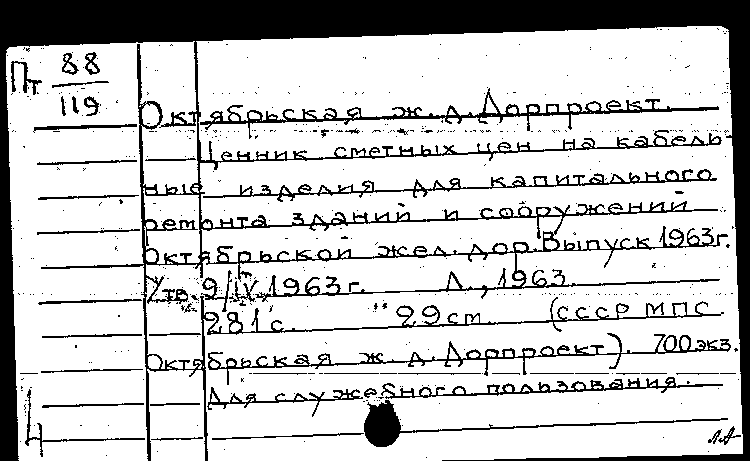 Пт 88
119
Октябрьская ж. д. Дорпроект.
Ценник сметных цен на кабель-
ные изделия для капитального
ремонта зданий и сооружений
Октябрьской жел. дор. Выпуск 1963г.
Утв. 9/IV 1963г. Л., 1963.
281с. 29см. (СССР МПС.
Октябрьская ж. д. Дорпроект). 700 экз.
Для служебного пользования.